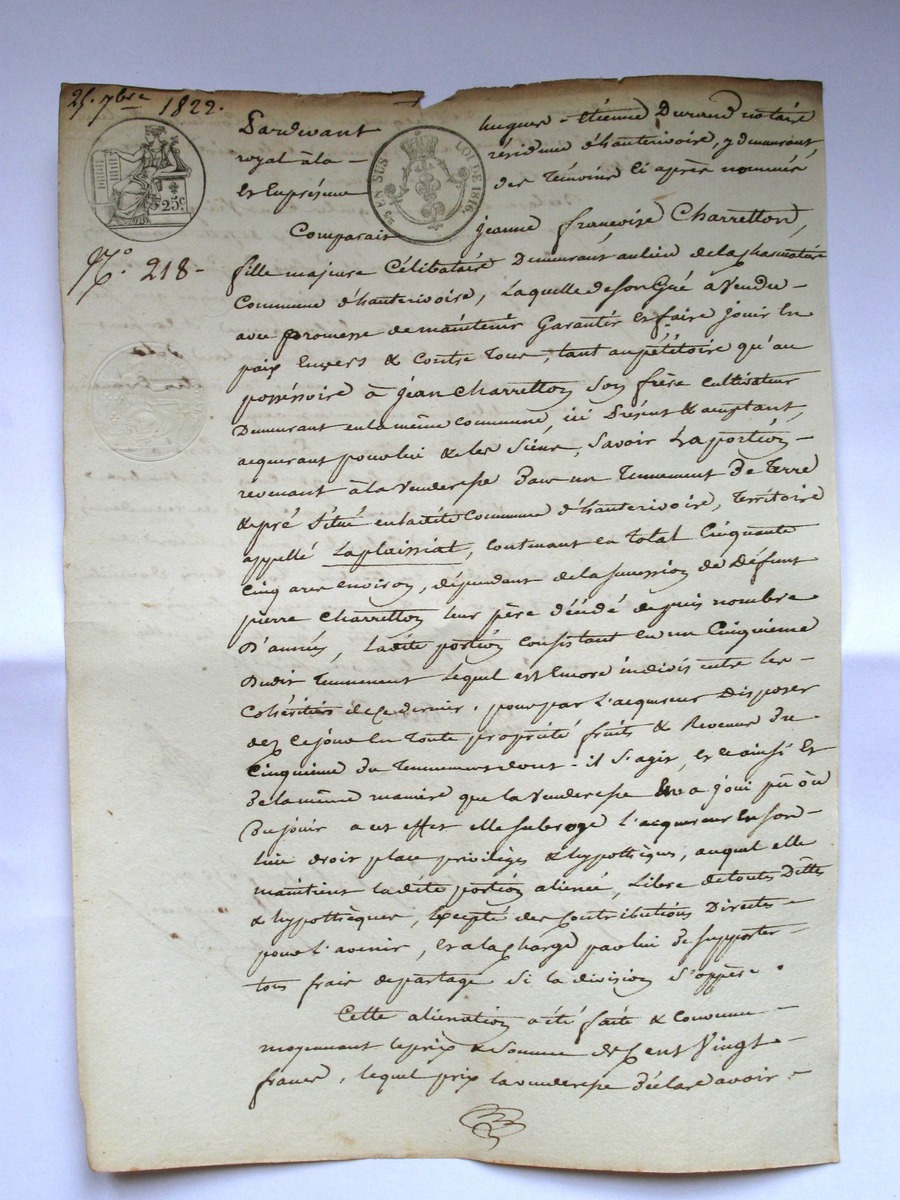 25. 7bre 1822.
Pardevant hugues - Etienne Durand notaire
royal à la - résidence d'hauterivoire, y demeurant,
et En présence des Témoins Ci après nommés
25c.
¼ EN SUS LOI DE 1816.
Comparait jeanne françoise Charretton,
No. 218 -
fille majeure Célibataire Demeurant au lieu de la
Commune d'hauterivoire, Laquelle de Son Gré à Vendu -
avec promesse de maintenir Garantir et faire jouir En
paix Envers & Contre Tous, tant au pétitoire qu'au
possessoire à jean Charretton Son frère Cultivateur
Demeurant en la même Commune, ici Présent & acceptant,
acquerant pour lui & les Siens, Savoir La portion -
revenant à la Venderesse Dans un Tennement De Terre
& pré Situé en la dite Commune d'hauterivoire, Territoire
appellé Laplaissiat, Contenant en Total Cinquante
Cinq ares environ, dépendant de la succession de Défunt
pierre Charretton leur père décédé depuis nombre
D'années, Ladite portion Consistant en un Cinquième
Dudit Tennement Lequel est Encore indivis entre les -
Cohéritiers de Ce dernier, pour par L'acquereur Disposer
dez Ce jour En Toute propriété fruits & Revenus Du
Cinquième Du Tennement dont - il S'agit, et Ce ainsi Et
De la même manière que la Venderesse En a joui pû ou
Du jouir a cet effet elle Subroge L'acquereur En Son -
lieu droit place privilèges & hypothèques, auquel elle
maintient la dite portion alienée, Libre de toutes Dettes
& hypothèques, Excepté des Contributions Directes -
pour L'avenir, et a la Charge par lui De Supporter -
tous frais de partage Si la division S'oppère.
Cette aliénation a été faite & Convenue -
moyennant le prix & Somme de Cent Vingt -
francs, lequel prix la venderesse Déclare avoir -